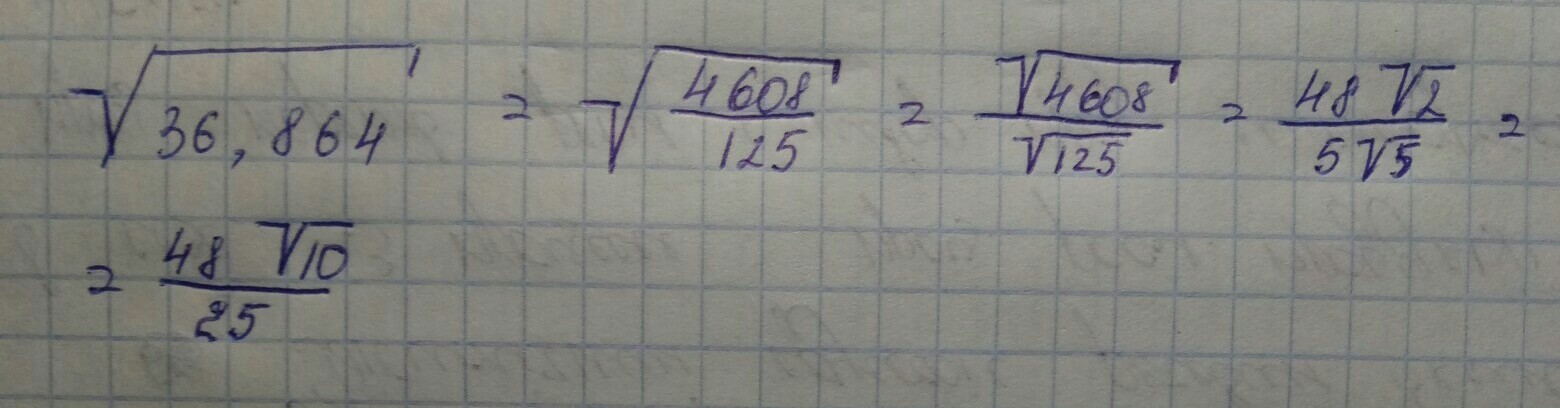 √36,864 = √(4608/125) = √4608/√125 = 48√2/5√5 =
= 48√10/25